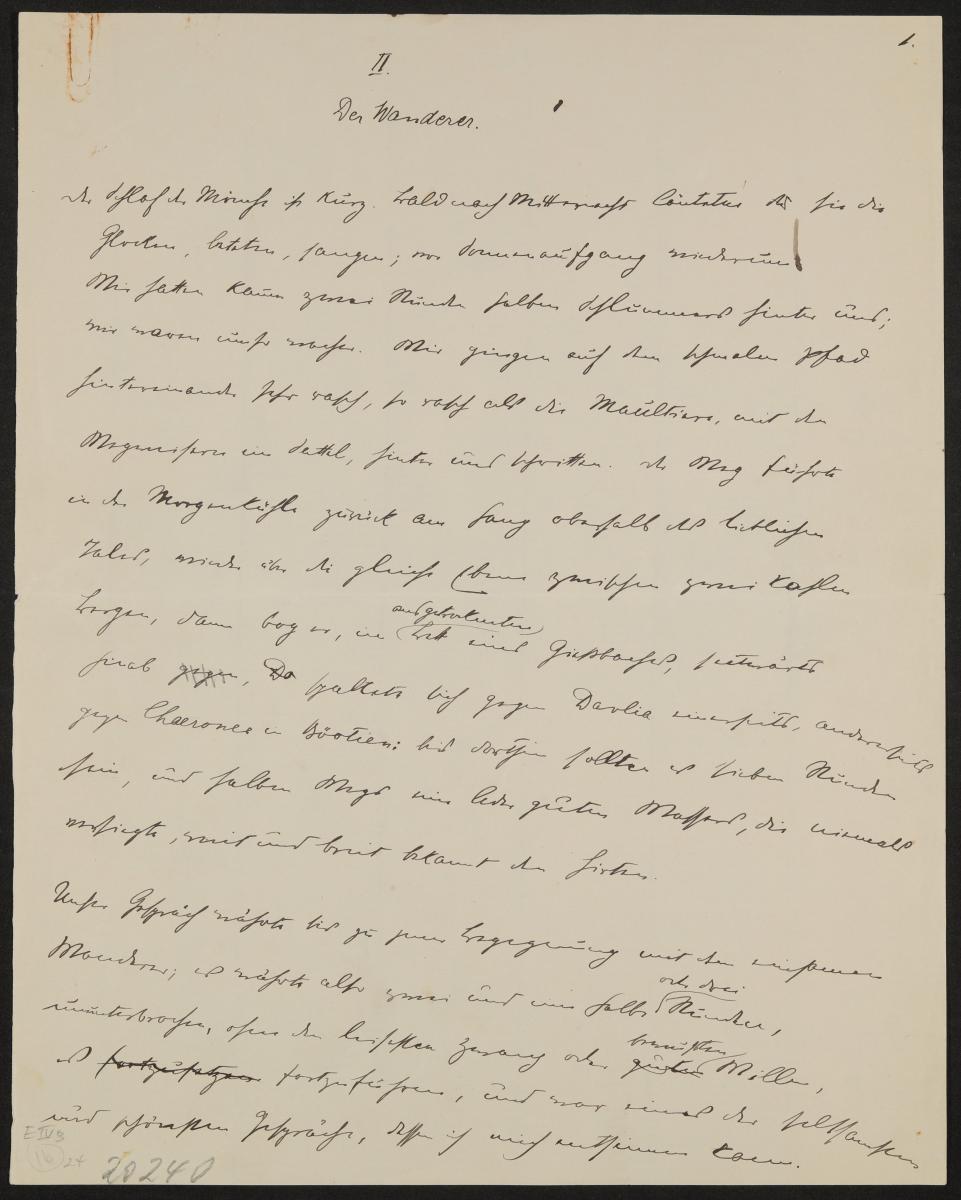 1.
II.
Der Wanderer.
Der Schlaf der Mönche ist kurz. Bald nach Mitternacht läuteten sie die
Glocken, beteten, sangen; vor Sonnenaufgang wiederum
Wir hatten kaum zwei Stunden halben Schlummers hinter uns;
wir waren mehr wach. Wir gingen auf dem schmalen Pfad
hintereinander sehr rasch, so rasch als die Maultiere, mit den
Wegweisern im Sattel, hinter uns schritten. Der Weg führte
in der Morgenkühle zurück am Hang oberhalb des lieblichen
Tales, wieder über die gleiche Ebene zwischen zwei kahlen
Bergen, dann bog er, im
ausgetrockneten
Bett eines Gießbaches, seitwärts
hinab gegen, Da spaltete sich gegen Davlia einerseits, anderseits
gegen Chaeronea in Böotien: bis dorthin sollten es sieben Stunden
sein, und halben Wegs eine Quelle guten Wassers, die niemals
versiegte, weit und breit bekannt den Hirten.
Unser Gespräch währte bis zu jener Begegnung mit dem einsamen
Wanderer; es währte also zwei und eine halbe
oder drei
Stunden,
ununterbrochen, ohne den leisesten Zwang oder
bewußten
guten Willen,
es fortzusetzen fortzuführen, und war eines der seltsamsten
und schönsten Gespräche, dessen ich mich entsinnen kann.
E IV 3
16
24
20240